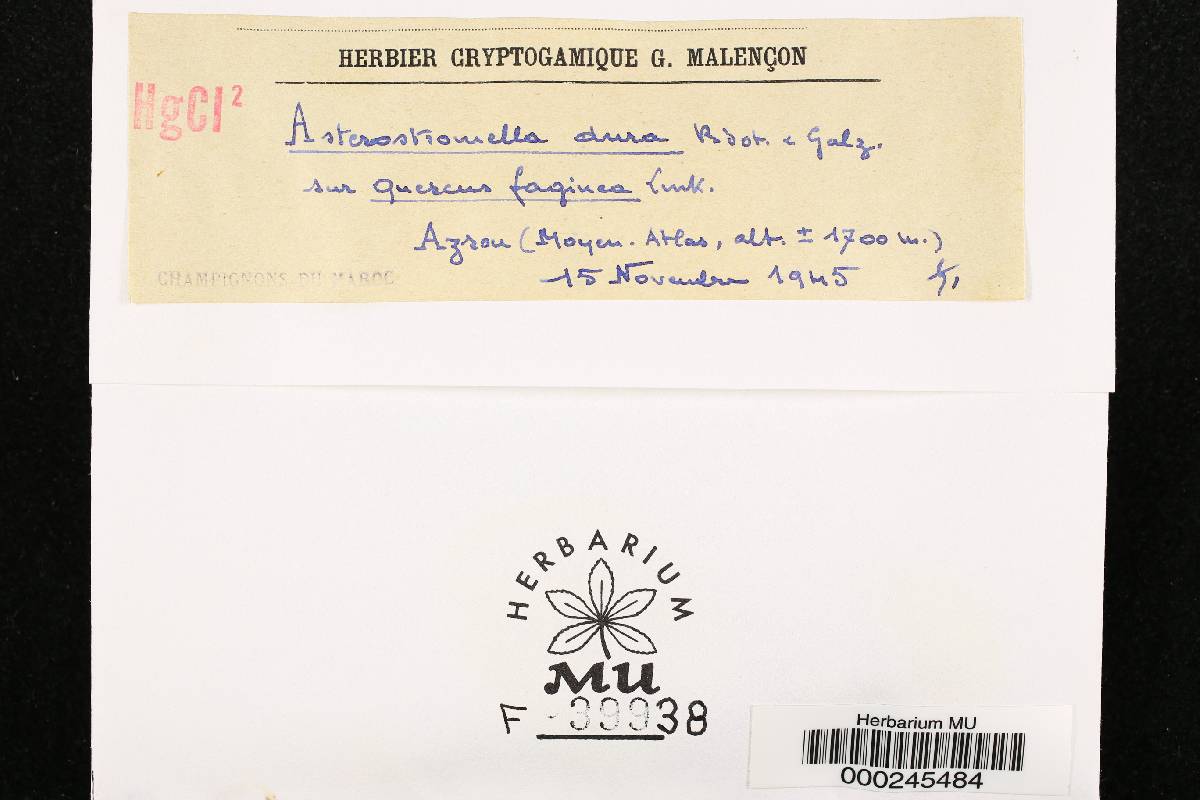 HERBIER CRYPTOGAMIQUE G. MALENÇON
HgCl²
Asterostromella dura Bdot. & Galz.
sur Quercus faginea Lmk.
Azrou (Moyen. Atlas, alt. ± 1700 m.)
CHAMPIGNONS DU MAROC
15 Novembre 1945
HERBARIUM
MU
F-39938
Herbarium MU
000245484